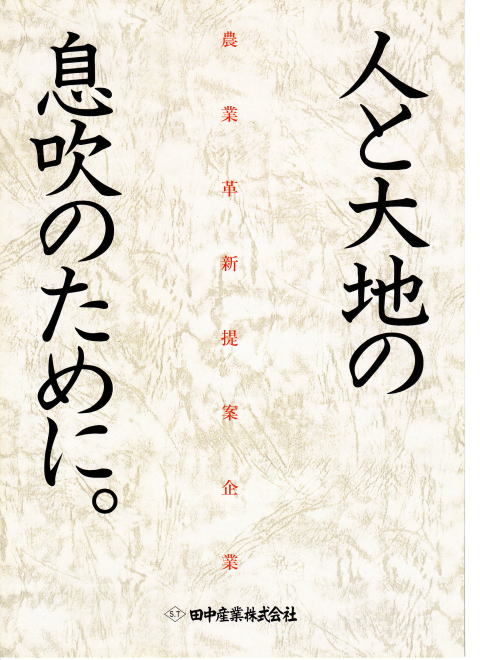 人と大地の
農業革新提案企業
息吹のために。
S.T 田中産業株式会社